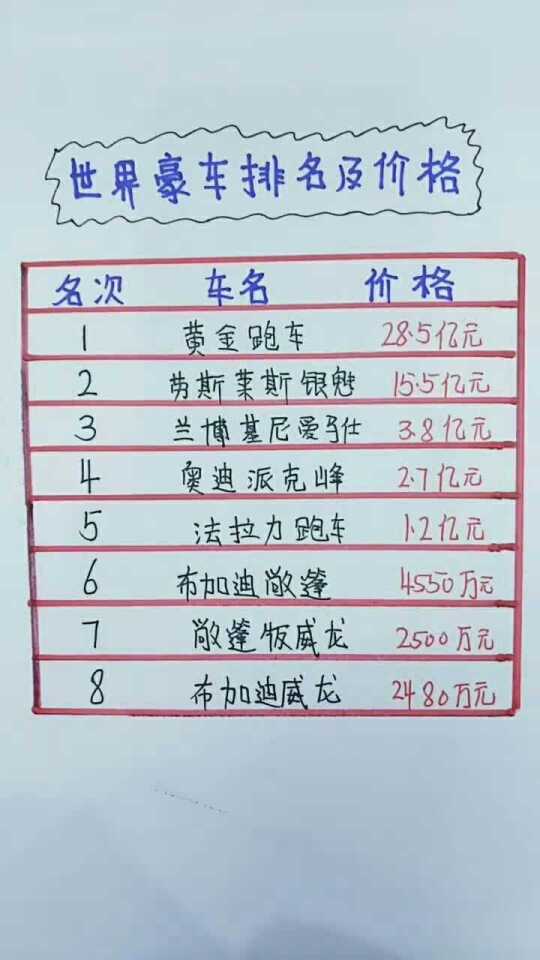 世界豪车排名及价格
名次 车名 价格
1 黄金跑车 28.5亿元
2 劳斯莱斯银魅 15.5亿元
3 兰博基尼爱马仕 3.8亿元
4 奥迪派克峰 2.7亿元
5 法拉力跑车 1.2亿元
6 布加迪敞篷 4550万元
7 敞篷版威龙 2500万元
8 布加迪威龙 2480万元